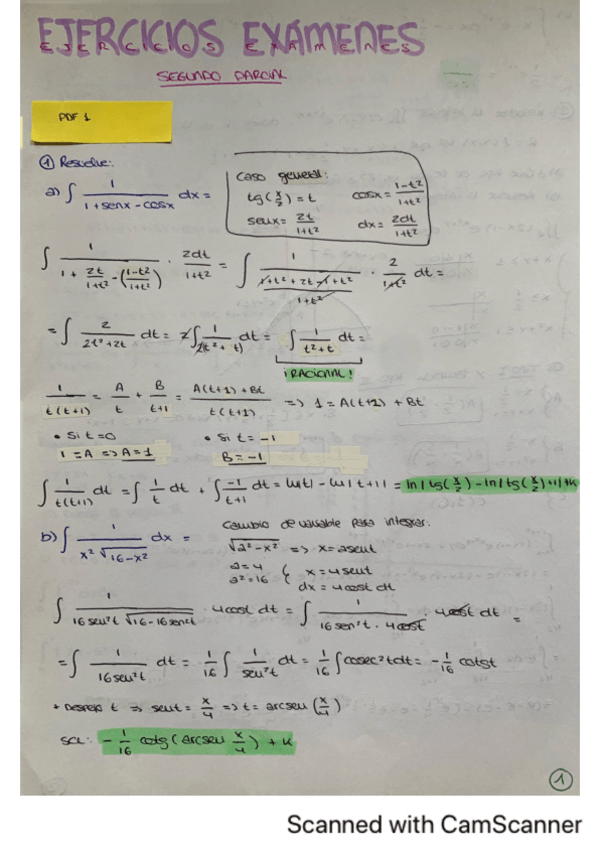 EJERCICIOS EXÁMENES
SEGUNDO PARCIAL
PDF 1
① Resuelve:
a) ∫ 1/(1+senx-cosx) dx =
Caso general:
tg(x/2) = t cosx = (1-t²)/(1+t²)
senx = 2t/(1+t²) dx = 2dt/(1+t²)
∫ 1/(1 + 2t/(1+t²) - ((1-t²)/(1+t²))) · 2dt/(1+t²) = ∫ 1/((1+t²+2t-1+t²)/(1+t²)) · 2/(1+t²) dt =
= ∫ 2/(2t²+2t) dt = 2∫ 1/(2(t²+t)) dt = ∫ 1/(t²+t) dt =
¡RACIONAL!
1/(t(t+1)) = A/t + B/(t+1) = (A(t+1)+Bt)/(t(t+1)) => 1 = A(t+1) + Bt
• Si t=0 • Si t=-1
1=A => A=1 B=-1
∫ 1/(t(t+1)) dt = ∫ 1/t dt + ∫ -1/(t+1) dt = ln|t| - ln|t+1| = ln|tg(x/2)| - ln|tg(x/2)+1|+K
b) ∫ 1/(x²√(16-x²)) dx =
Cambio de variable para integrar:
√(a²-x²) => x=asent
a=4
a²=16 { x=4sent
dx = 4cost dt
∫ 1/(16sen²t √(16-16sen²t)) · 4cost dt = ∫ 1/(16sen²t · 4cost) · 4cost dt =
= ∫ 1/(16sen²t) dt = 1/16 ∫ 1/(sen²t) dt = 1/16 ∫ cosec²t dt = -1/16 cotgt
* Despejo t => sent = x/4 => t = arcsen(x/4)
SOL: -1/16 cotg(arcsen x/4) + K
1
Scanned with CamScanner